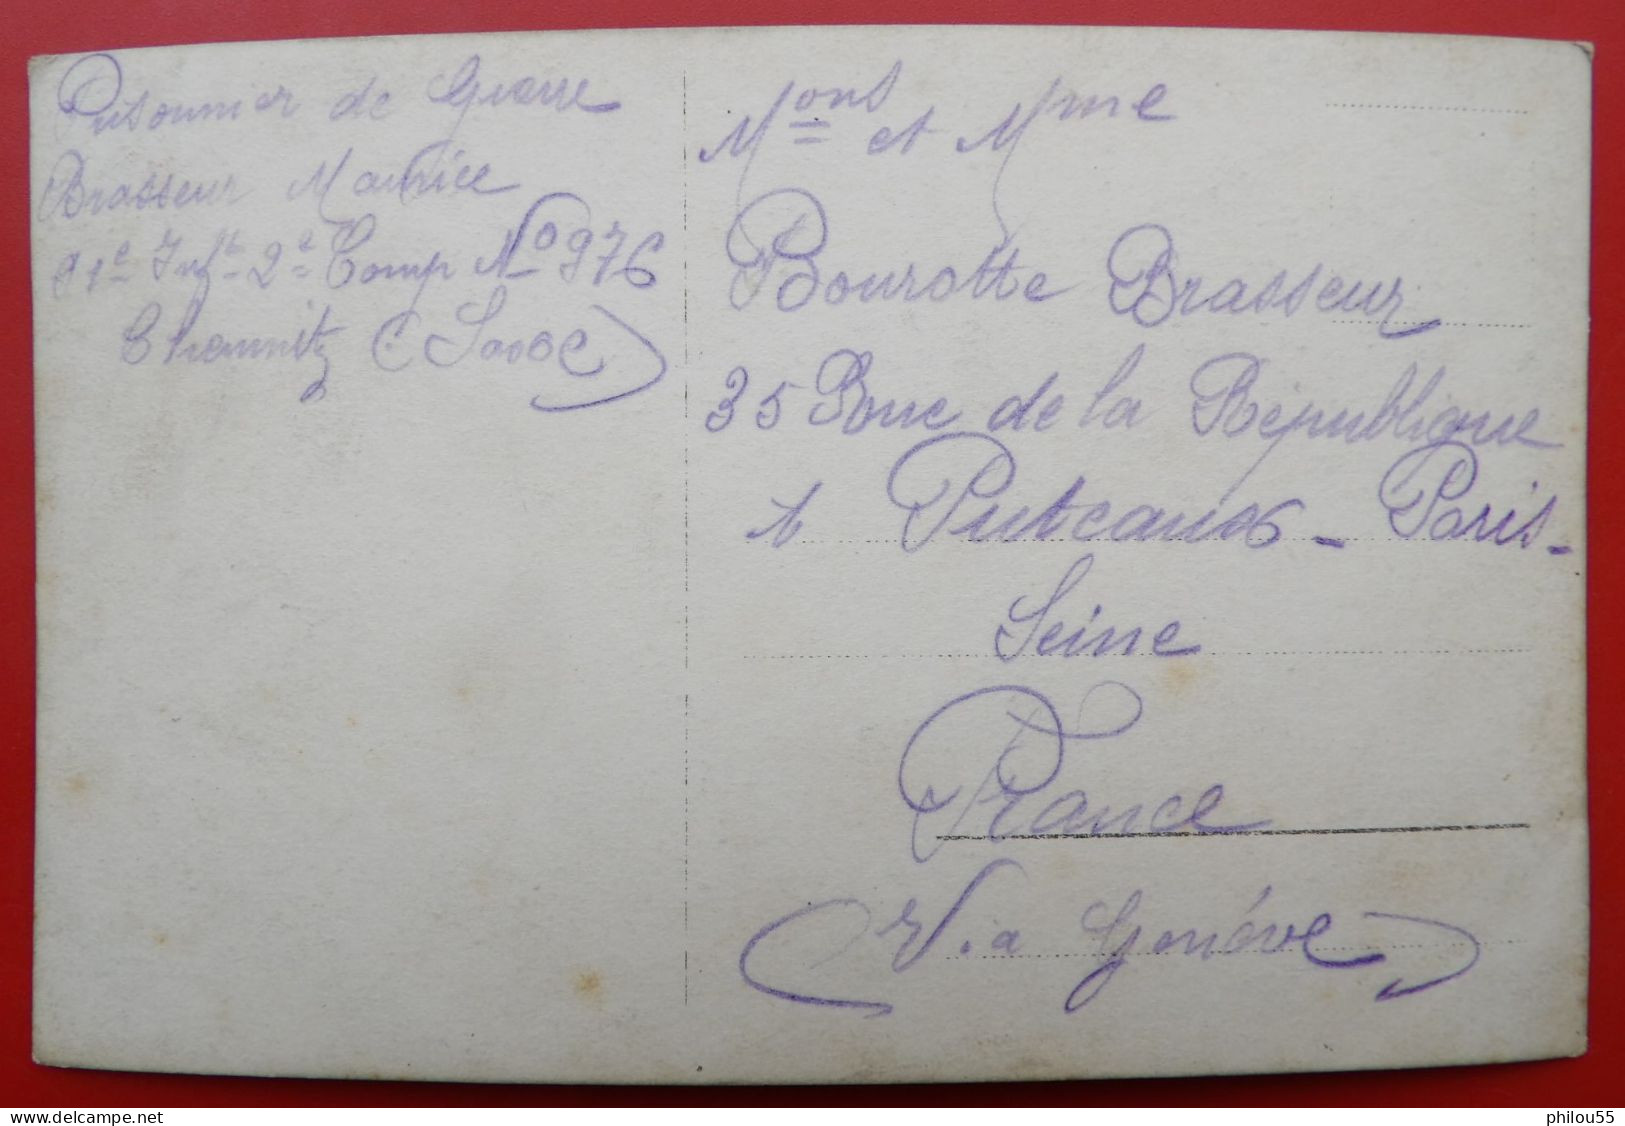 Prisonnier de Guerre
Brasseur Maurice
91e Inft 2e Comp No 976
Chemnitz (Saxe)
Mons et Mme
Bourotte Brasseur
35 Rue de la République
à Puteaux - Paris -
Seine
France
(Via Genéve)
www.delcampe.net
philou55